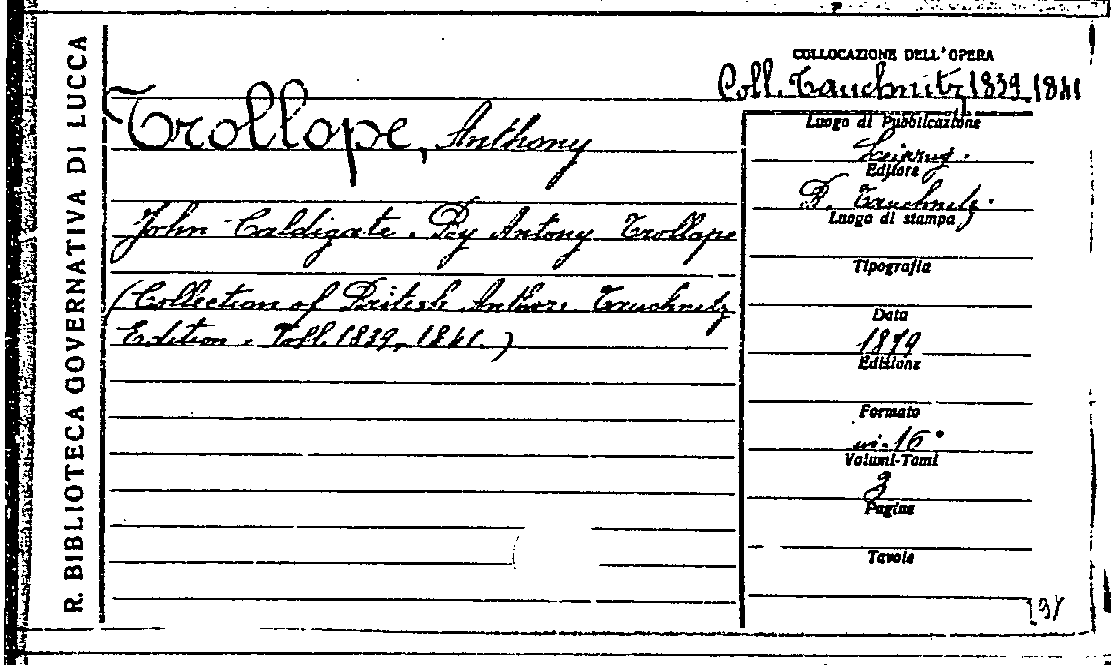 R. BIBLIOTECA GOVERNATIVA DI LUCCA
COLLOCAZIONE DELL'OPERA
Coll. Tauchnitz 1839-1841
Trollope, Anthony
John Caldigate. By Antony Trollope
(Collection of British Authors Tauchnitz
Edition. Voll. 1839, 1841.)
Luogo di Pubblicazione
Leipzig.
Editore
B. Tauchnitz.
Luogo di stampa
Tipografia
Data
1879
Edizione
Formato
in-16°
Volumi-Tomi
3
Pagine
Tavole